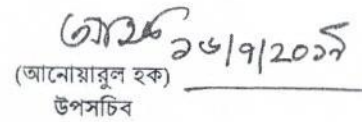 ১৬/৭/২০১৭
(আনোয়ারুল হক)
উপসচিব